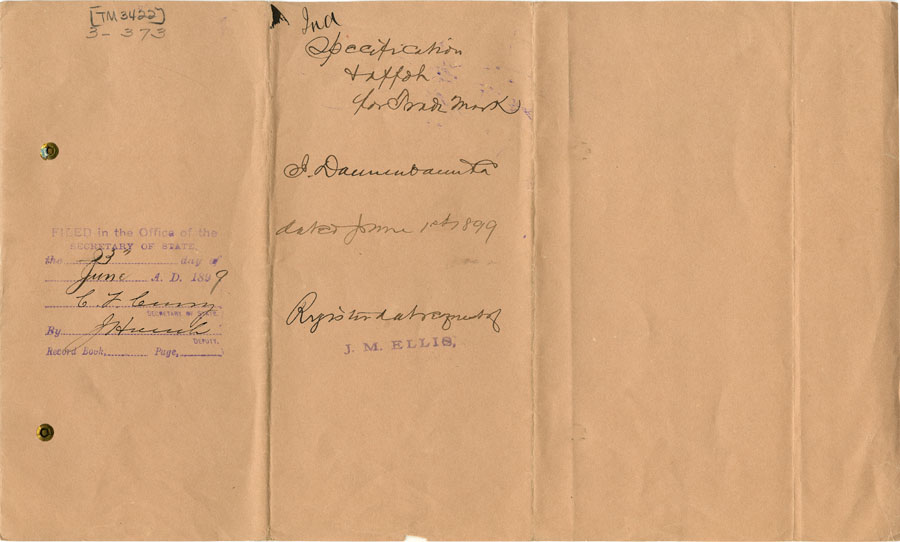 [TM 3422]
3-373
FILED in the Office of the
SECRETARY OF STATE,
the 23" day of
June A. D. 1899
C. F. Curry
SECRETARY OF STATE
By J Hoesch
DEPUTY.
Record Book, Page,
Ind
Specification
for Trade Mark
dated June 1st 1899
Registered at request of
J. M. ELLIS,